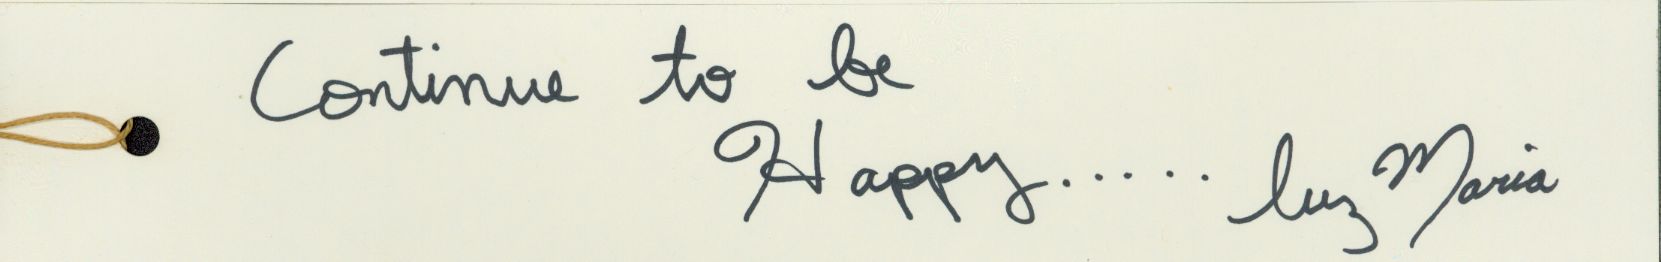 Continue to be
Happy...... Luz Maria